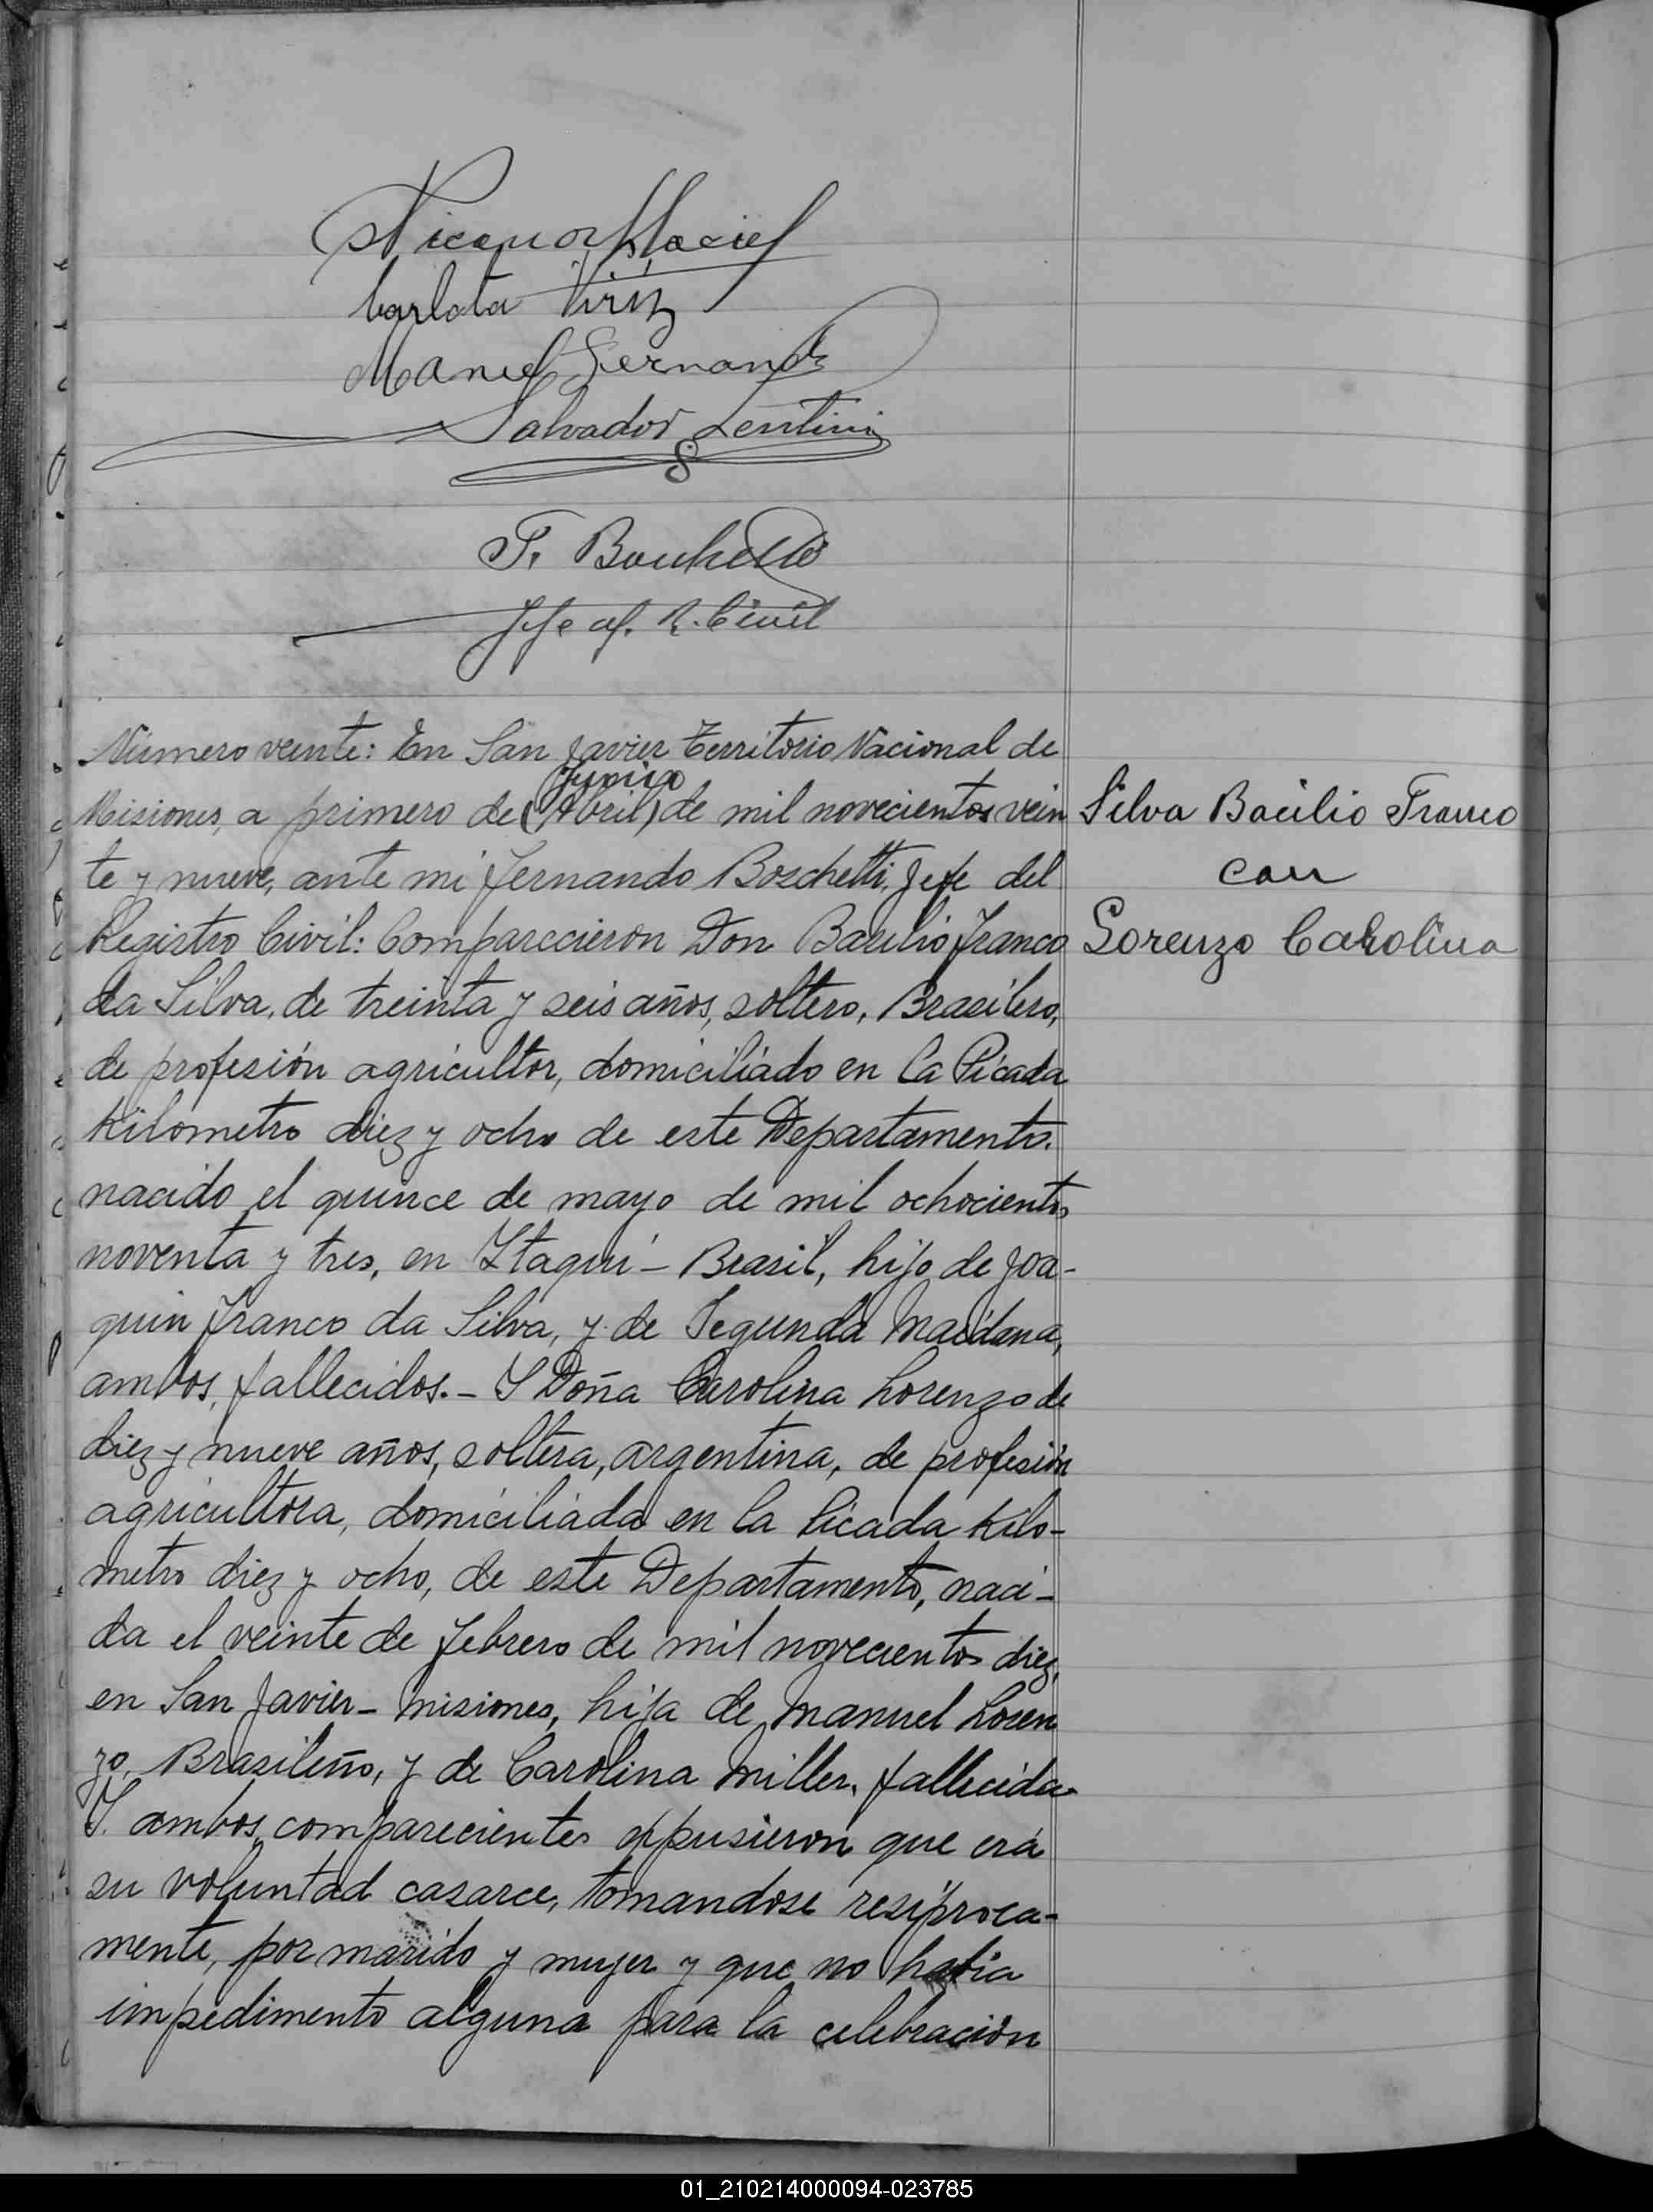 Nicanor Maciel
Carlota
Manuel Fernandz
Salvador Lentini
F. Boschetti
Jefe of. R. Civil
Número veinte: En San Javier Territorio Nacional de
Junio
Misiones, a primero de (Abril) de mil novecientos vein
te y nueve, ante mi Fernando Boschetti, Jefe del
Registro Civil: Comparecieron Don Basilio Franco
da Silva, de treinta y seis años, soltero, Brasilero,
de profesión agricultor, domiciliado en La Picada
Kilometro diez y ocho de este Departamento.
nacido el quince de mayo de mil ochocientos
noventa y tres, en Itaqui - Brasil, hijo de Joa-
quin Franco da Silva, y de Segunda Maidana,
ambos, fallecidos.- Y Doña Carolina Lorenzo de
diez y nueve años, soltera, argentina, de profesión
agricultora, domiciliada en la Picada Kilo-
metro diez y ocho, de este Departamento, naci-
da el veinte de Febrero de mil novecientos diez,
en San Javier - Misiones, hija de Manuel Loren
zo, Brasileño, y de Carolina Miller, fallecida
Y. ambos comparecientes expusieron que era
su voluntad casarce, tomandose resiproca-
mente, por marido y mujer y que no habia
impedimento alguna para la celebración
Silva Bacilio Franco
con
Lorenzo Carolina
01_210214000094-023785